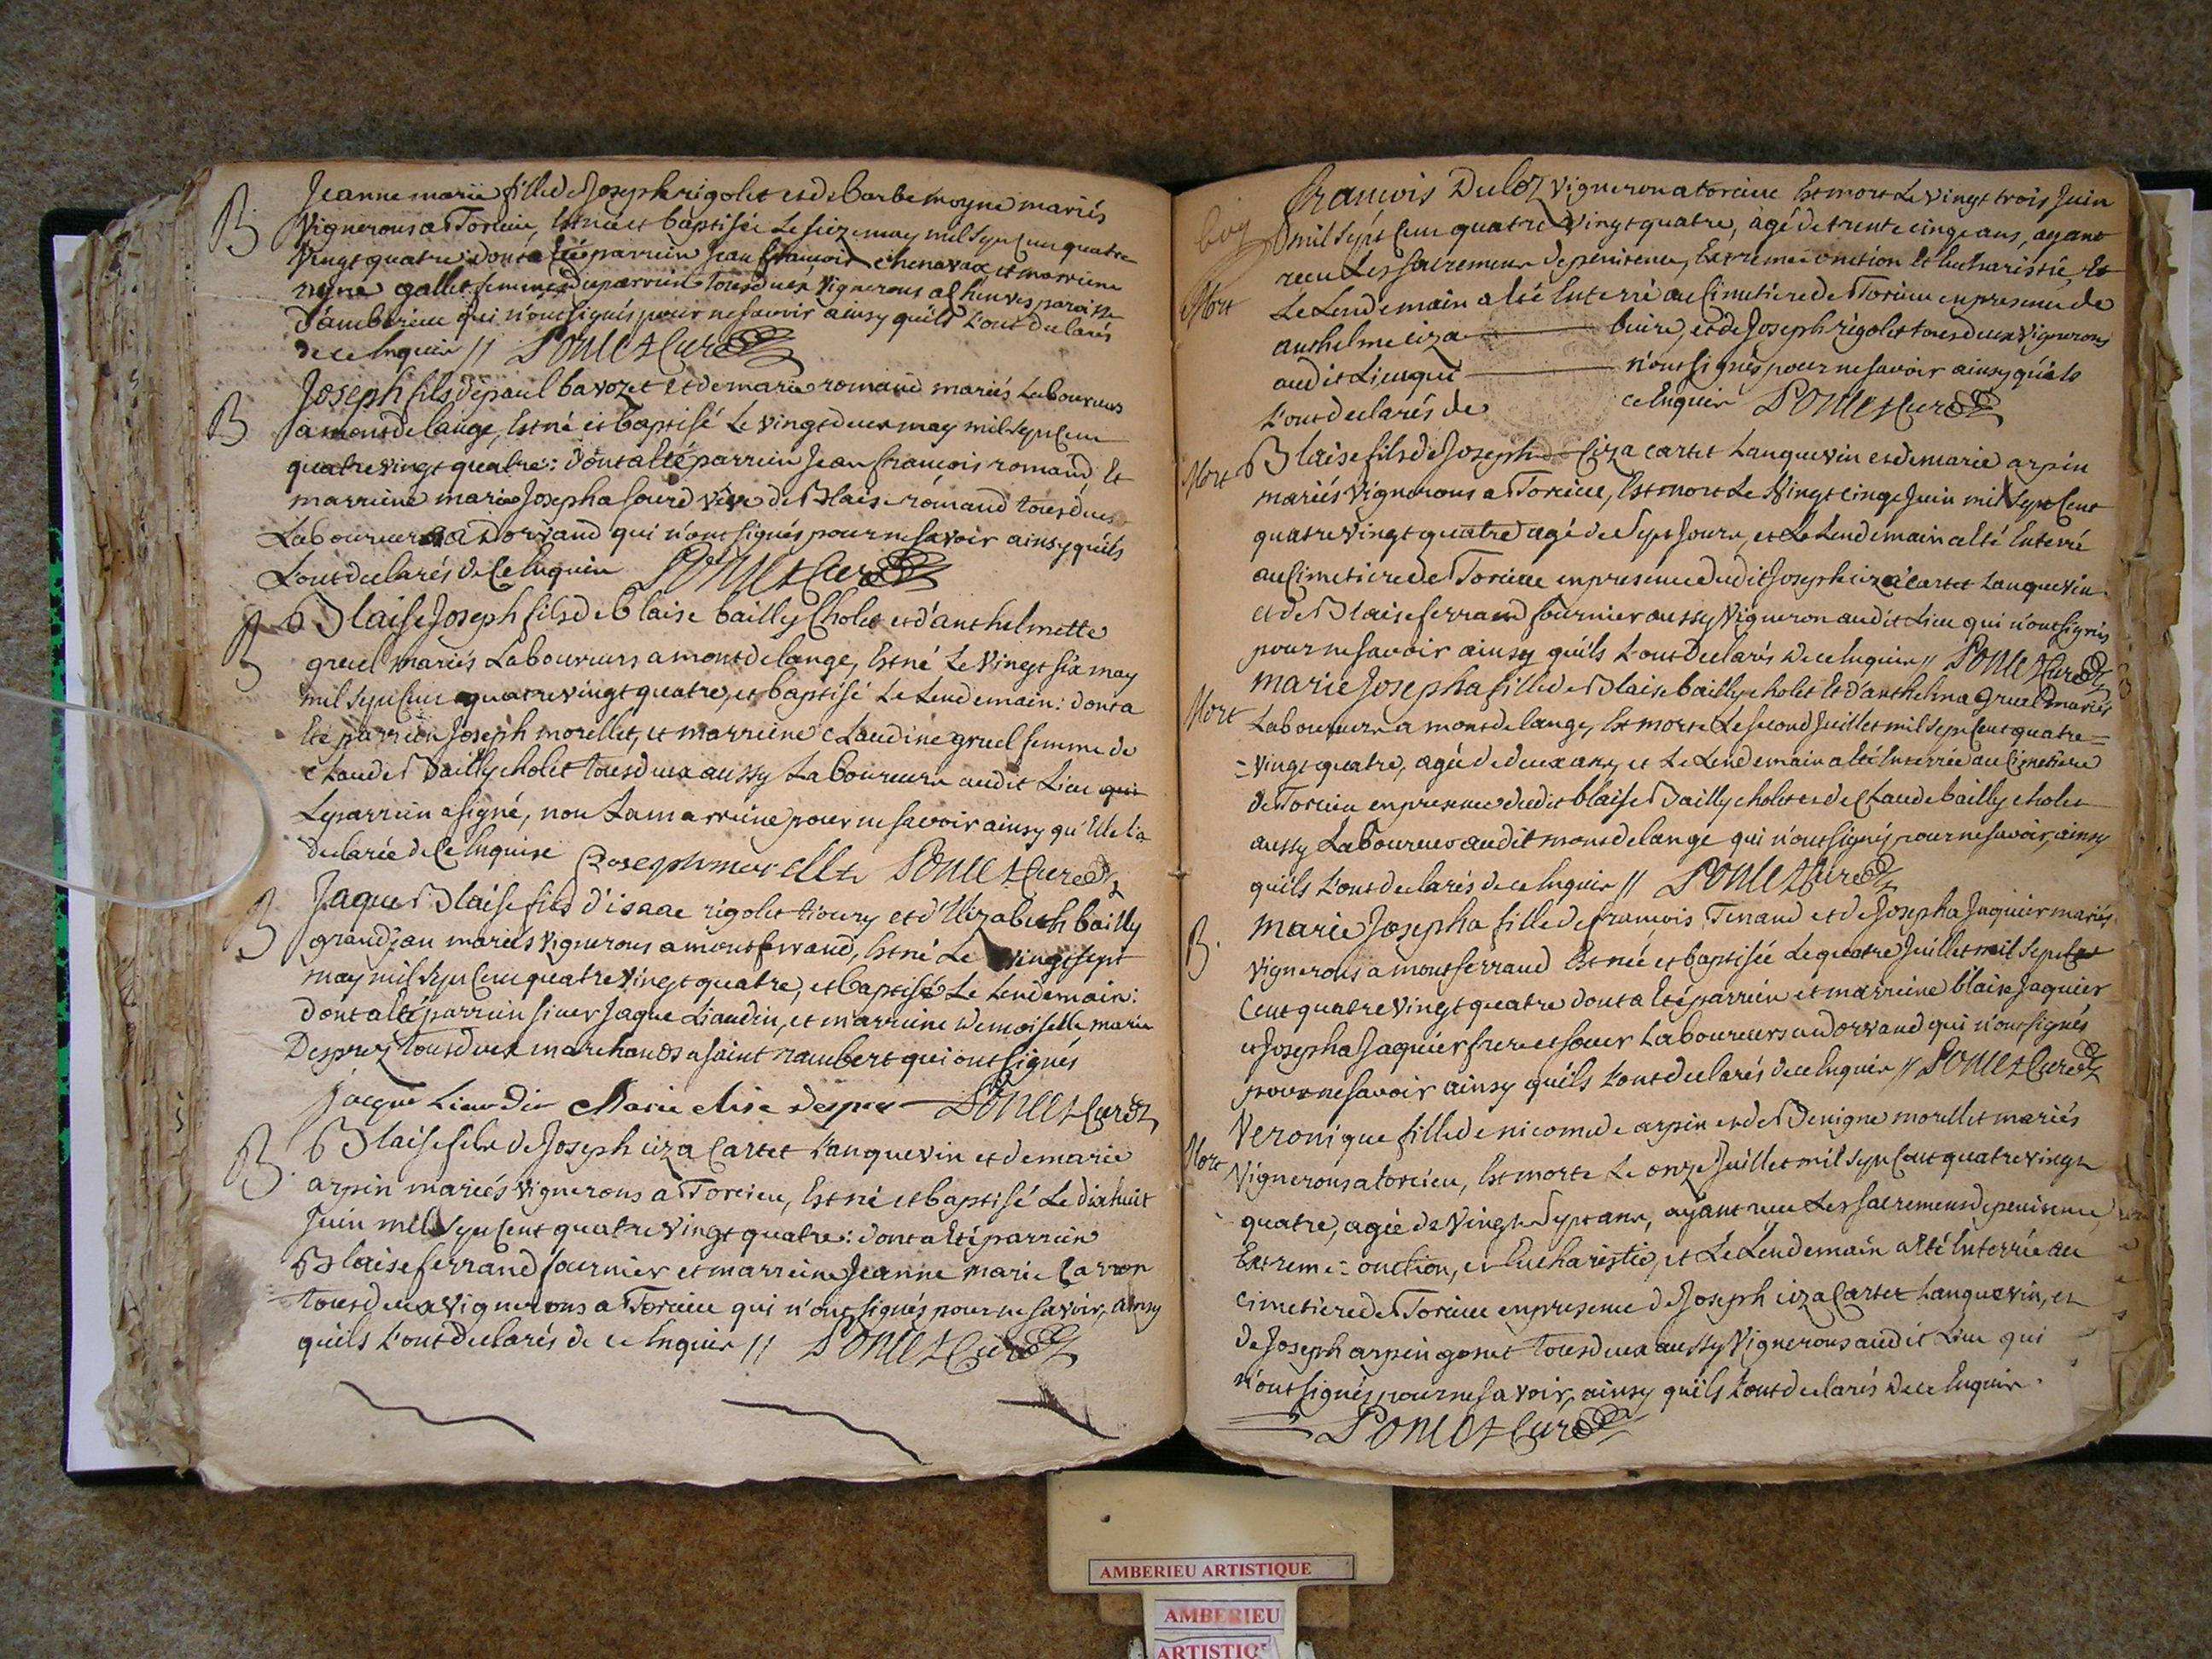 B. Jeanne marie fille de Joseph rigolet et de Barbe moyne mariés
Vignerons a Torcieu, Est née et baptisée le seize may mil sept Cent quatre
Vingt quatre dont a Eté parrein Jean francois chenavax et marreine
reyne gallet femme dud parrein tous deux Vignerons a paroisse
d'amberieu qui n'ont signés pour ne savoir ainsy qu'ils l'ont declarés
de ce Enquis // Poncet Curé
Joseph fils de paul bavozet et de marie romand mariés Laboureurs
B a montdelange, Est né et baptisé le vingt deux may mil sept Cent
quatre vingt quatre: dont a Eté parrein Jean francois romand Et
marreine marie Josepha sourd vève de Blaise romand tous deux
Laboureurs a dorvand qui n'ont signés pour ne savoir ainsy qu'ils
L'ont declarés de Ce Enquis Poncet Curé
B Blaise Joseph fils de blaise bailly Cholet et d'anthelmette
gruel mariés Laboureurs a montdelange, Est né Le Vingt six may
mil sept Cent quatre vingt quatre, et baptisé Le Lendemain: dont a
Eté parrein Joseph morellet, et marreine Claudine gruel femme de
Claude Bailly cholet tous deux aussy Laboureurs audit Lieu qui
Le parrein a signé, non La marreine pour ne savoir ainsy qu'Elle l'a
declarée de Ce Enquise Joseph morellet Poncet Curé
B Jaque Blaise fils d'isaac rigolet tioury et d'Elizabeth bailly
grandjan mariés Vignerons a montferrand, Est né Le vingt sept
may mil sept Cent quatre Vingt quatre, et baptisé Le Lendemain:
dont a Eté parrein sieur Jaque Liaudin, et marreine demoiselle marie
Desprez tous deux marchands a saint rambert qui ont signés
jacque Liaudin Marie elise desprez Poncet Curé
B. Blaise fils de Joseph ciza Cartet Lanquevin et de marie
arpin mariés Vignerons a Torcieu, Est né et baptisé Le dix huit
Juin mil sept Cent quatre Vingt quatre: dont a Eté parrein
Blaise ferrand fournier et marreine Jeanne marie Carron
tous deux Vignerons a Torcieu qui n'ont signés pour ne savoir, ainsy
qu'ils L'ont declarés de ce Enquis // Poncet Curé
francois Duloz Vigneron a torcieu Est mort Le Vingt trois Juin
mil sept Cent quatre Vingt quatre, agé de trente cinq ans, ayant
recu Les sacremens de penitence, Extreme onction Et Eucharistie, Et
Mort Le Lendemain a Eté Enterré au Cimetiere de Torcieu en presence de
anthelme ciza buire, et de Joseph rigolet tous deux Vignerons
audit Lieu qui n'ont signés pour ne savoir ainsy qu'ils
L'ont declarés de ce Enquis Poncet Curé
Mort Blaise fils de Joseph Ciza cartet Lanquevin et de marie arpin
mariés Vignerons a Torcieu, Est mort Le Vingt cinq Juin mil sept Cent
quatre vingt quatre agé de sept Jours, et Le Lendemain a Eté Enterré
au Cimetiere de Torcieu en presence dudit Joseph ciza cartet Lanquevin
et de Blaise ferrand fournier aussy Vigneron audit Lieu qui n'ont signés
pour ne savoir ainsy qu'ils L'ont declarés de ce Enquis // Poncet Curé
marie Josepha fille de Blaise bailly cholet Et d'anthelma gruel mariés
Mort Laboureurs a montdelange, Est morte Le second Juillet mil sept Cent quatre=
=vingt quatre, agée de deux ans, et Le Lendemain a Eté Enterrée au Cimetiere
de Torcieu en presence dudit blaise Bailly cholet et de Claude bailly cholet
aussy Laboureur audit montdelange qui n'ont signés pour ne savoir, ainsy
qu'ils L'ont declarés de ce Enquis // Poncet Curé
marie Josepha fille de francois Tenand et de Josepha Jaquier mariés
B. Vignerons a montferrand Est née et baptisée Le quatre Juillet mil sept
Cent quatre Vingt quatre dont a Eté parrein et marreine blaise Jaquier
et Josepha Jaquier frere et soeur Laboureurs a dorvand qui n'ont signés
pour ne savoir ainsy qu'ils L'ont declarés de ce Enquis // Poncet Curé
Veronique fille de nicomede arpin et de Benigne morellet mariés
Mort Vignerons a torcieu, Est morte Le onze Juillet mil sept Cent quatre vingt
quatre, agée de Vingt Sept ans, ayant recu Les sacremens de penitence,
Extreme=onction, et Eucharistie, et Le Lendemain a Eté Enterrée au
Cimetiere de Torcieu en presence de Joseph ciza Cartet Lanquevin, et
de Joseph arpin gonet tous deux aussy Vignerons audit Lieu qui
n'ont signés pour ne savoir, ainsy qu'ils L'ont declarés de ce Enquis.
Poncet Curé
AMBERIEU ARTISTIQUE
AMBERIEU
ARTISTIQ